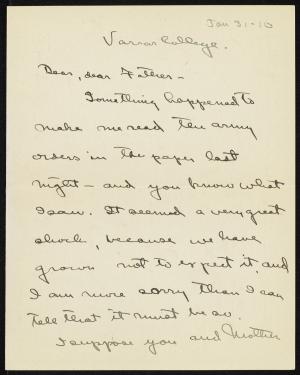 Jan 31-10
Vassar College.
Dear, dear Father –
Something happened to
make me read the army
orders in the paper last
night – and you know what
I saw. It seemed a very great
shock, because we have
grown not to expect it, and
I am more sorry than I can
tell that it must be so.
I suppose you and Mother